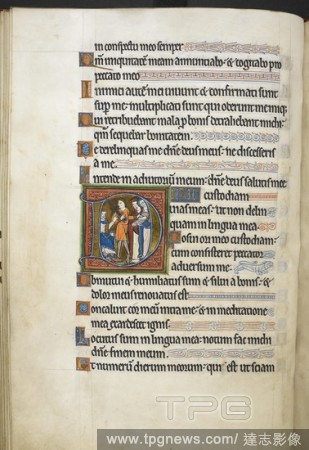 in conspectu meo semper
m iniquitatẽ meam annunciabo ⁊ cogitabo pro
peccato meo
Inimici autẽ mei uiuunt ⁊ confirmati sunt
sup me ⁊ multiplicati sunt qui oderunt me iniq;
ui retribuunt mala p bonis detrahebant michi
qm sequebar bonitatem
Ne derelinquas me dñe deus meus ne discesseris
a me
Intende in adiutoriũ meum dñe deus salutis meę
D
custodiam
uias meas ut non delin
quam in lingua mea
Posui ori meo custodiam
cum consisteret peccator
aduersum me
Obmutui ⁊ humiliatus sum ⁊ silui a bonis ⁊
dolor meus renouatus est
Concaluit cor meũ intra me ⁊ in meditatione
mea exardescet ignis
Locutus sum in lingua mea notum fac michi
dñe finem meum
Et numerũ dierum meorum qui est ut sciam
TPG
www.tpgnews.com/ 達志影像